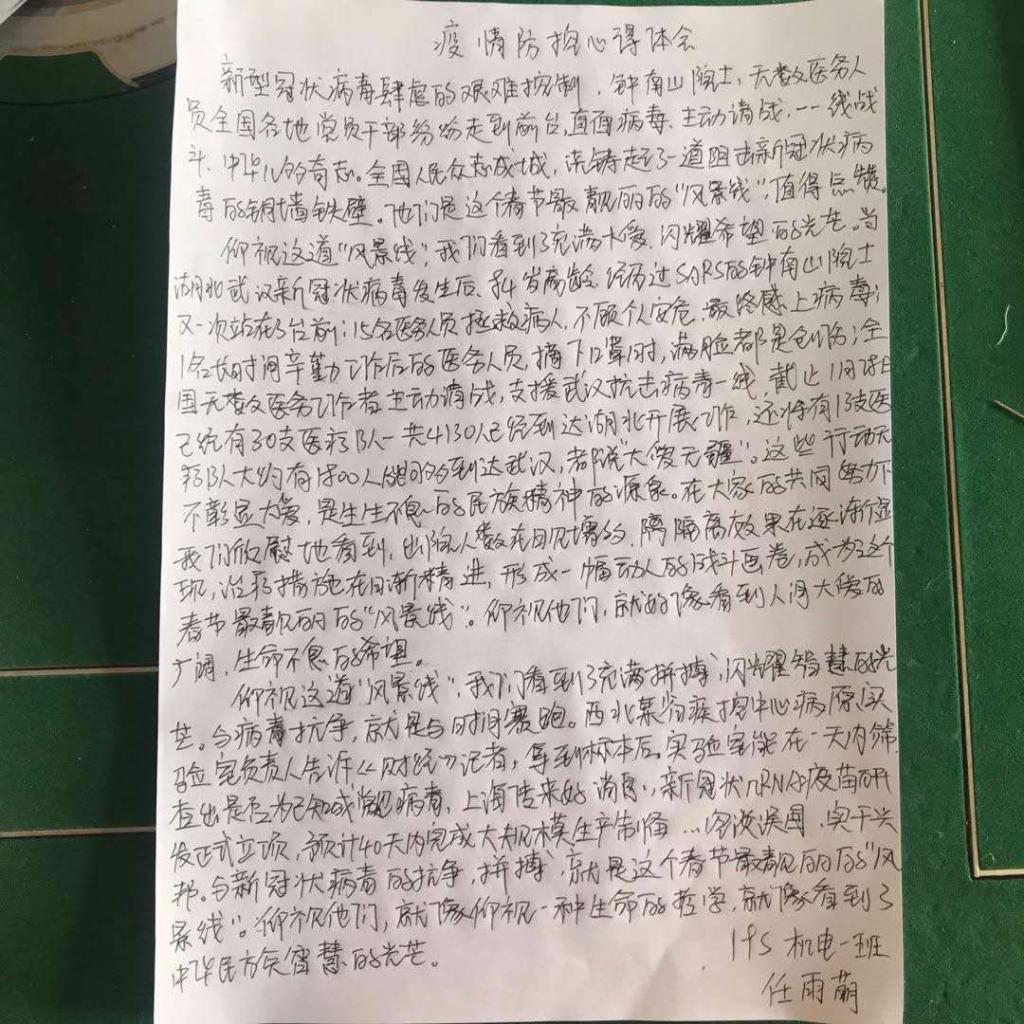 疫情防控心得体会
新型冠状病毒肆虐的艰难控制,钟南山院士,无数医务人
员全国各地党员干部纷纷走到前台,直面病毒、主动请战,一一线战
斗,中华儿的奇志。全国人民众志成城,浇铸起了一道阻击新冠状病
毒的铜墙铁壁。他们是这个春节最靓丽的“风景线”,值得点赞。
仰视这道“风景线”,我们看到了充满大爱,闪耀希望的光芒。当
湖北武汉新冠状病毒发生后,84岁高龄,经历过SARS的钟南山院士
又一次站在了台前;15名医务人员拯救病人,不顾个人安危,最终感上病毒;
1名长时间辛勤工作后的医务人员,摘下口罩时,满脸都是创伤;全
国无数医务工作者主动请战,支援武汉抗击病毒一线,截止1月28日
已经有30支医疗队一共4130人已经到达湖北开展工作,还将有13支医
疗队大约有1800人陆续到达武汉,都说“大爱无疆”。这些行动无
不彰显大爱,是生生不息的民族精神的源泉。在大家的共同努力下
我们欣慰地看到,出院人数在日见增多,隔隔离效果在逐渐显
现,治疗措施在日渐精进,形成一幅动人的战斗画卷,成为这个
春节最靓丽的“风景线”。仰视他们,就好像看到人间大爱的
广阔,生命不息的希望。
仰视这道“风景线”,我们看到了充满拼搏、闪耀智慧的光
芒。与病毒抗争,就是与时间赛跑。西北某省疾控中心病原实
验室负责人告诉《财经》记者,拿到标本后,实验室能在一天内筛
查出是否为已知或常见病毒、上海传来好消息,新冠状mRNA疫苗研
发正式立项,预计40天内完成大规模生产制备…空谈误国,实干兴
邦。与新冠状病毒的抗争,拼搏,就是这个春节最靓丽的“风
景线”。仰视他们,就像仰视一种生命的哲学,就像看到了
中华民族智慧的光芒。
19S 机电一班
任雨萌